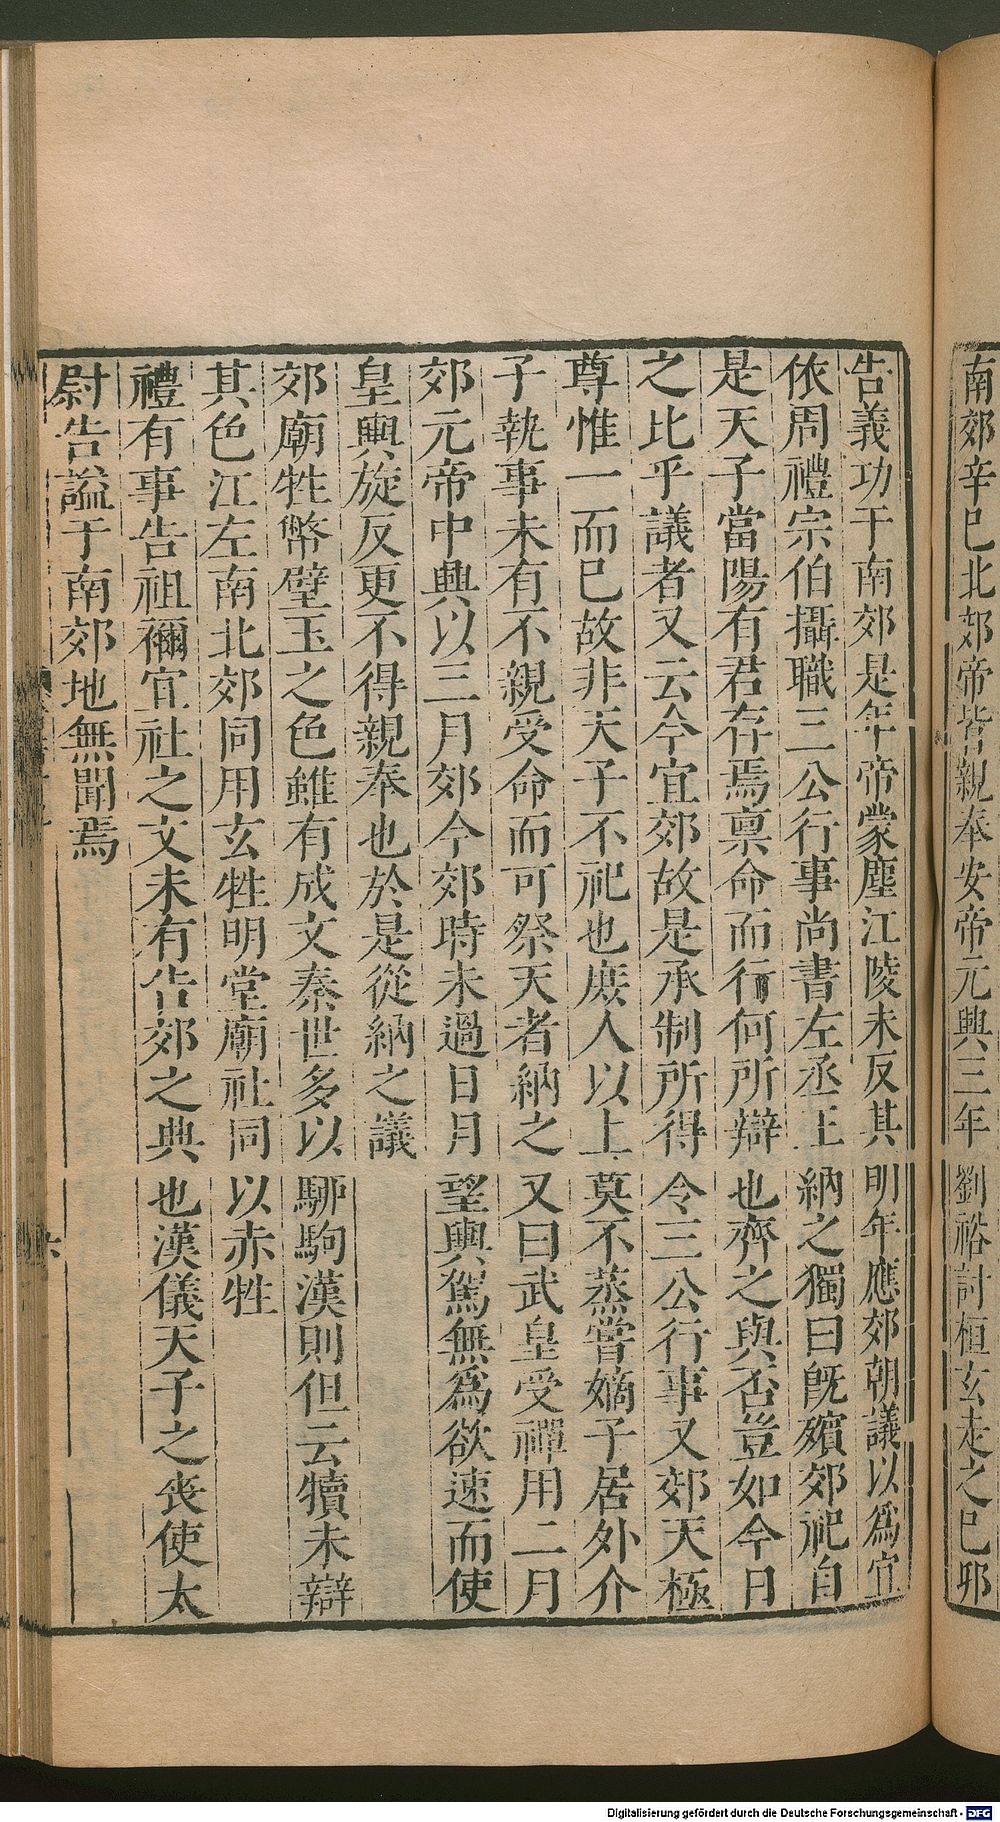 南郊辛巳北郊帝皆親奉安帝元興三年劉裕討桓玄走之巳卯
告義功于南郊是年帝蒙塵江陵未反其明年應郊朝議以爲宜
依周禮宗伯攝職三公行事尚書左丞王納之獨曰旣殯郊祀自
是天子當陽有君存焉禀命而行何所辯也齊之與否豈如今日
之比乎議者又云今宜郊故是承制所得令三公行事又郊天極
尊惟一而已故非天子不祀也庶人以上莫不蒸嘗嫡子居外介
子執事未有不親受命而可祭天者納之又曰武皇受禪用二月
郊元帝中興以三月郊今郊時未過日月望輿駕無爲欲速而使
皇輿旋反更不得親奉也於是從納之議
郊廟牲幣璧玉之色雖有成文秦世多以駵駒漢則但云犢未辯
其色江左南北郊同用玄牲明堂廟社同以赤牲
禮有事告祖禰宜社之文未有告郊之典也漢儀天子之丧使太
尉告謚于南郊地無聞焉
Digitalisierung gefördert durch die Deutsche Forschungsgemeinschaft - DFG